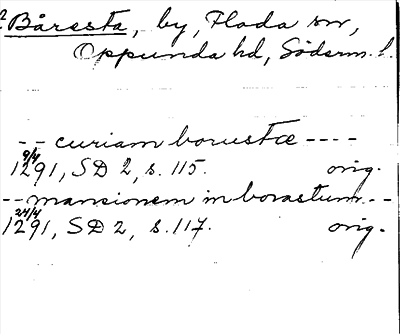 Båresta, by, Floda sn,
Oppunda hd, Söderm. l.
-- curiam borustæ ----
9/4
1291, SD 2, s. 115. orig.
-- mansionem in borastum --
24/4
1291, SD 2, s. 117. orig.